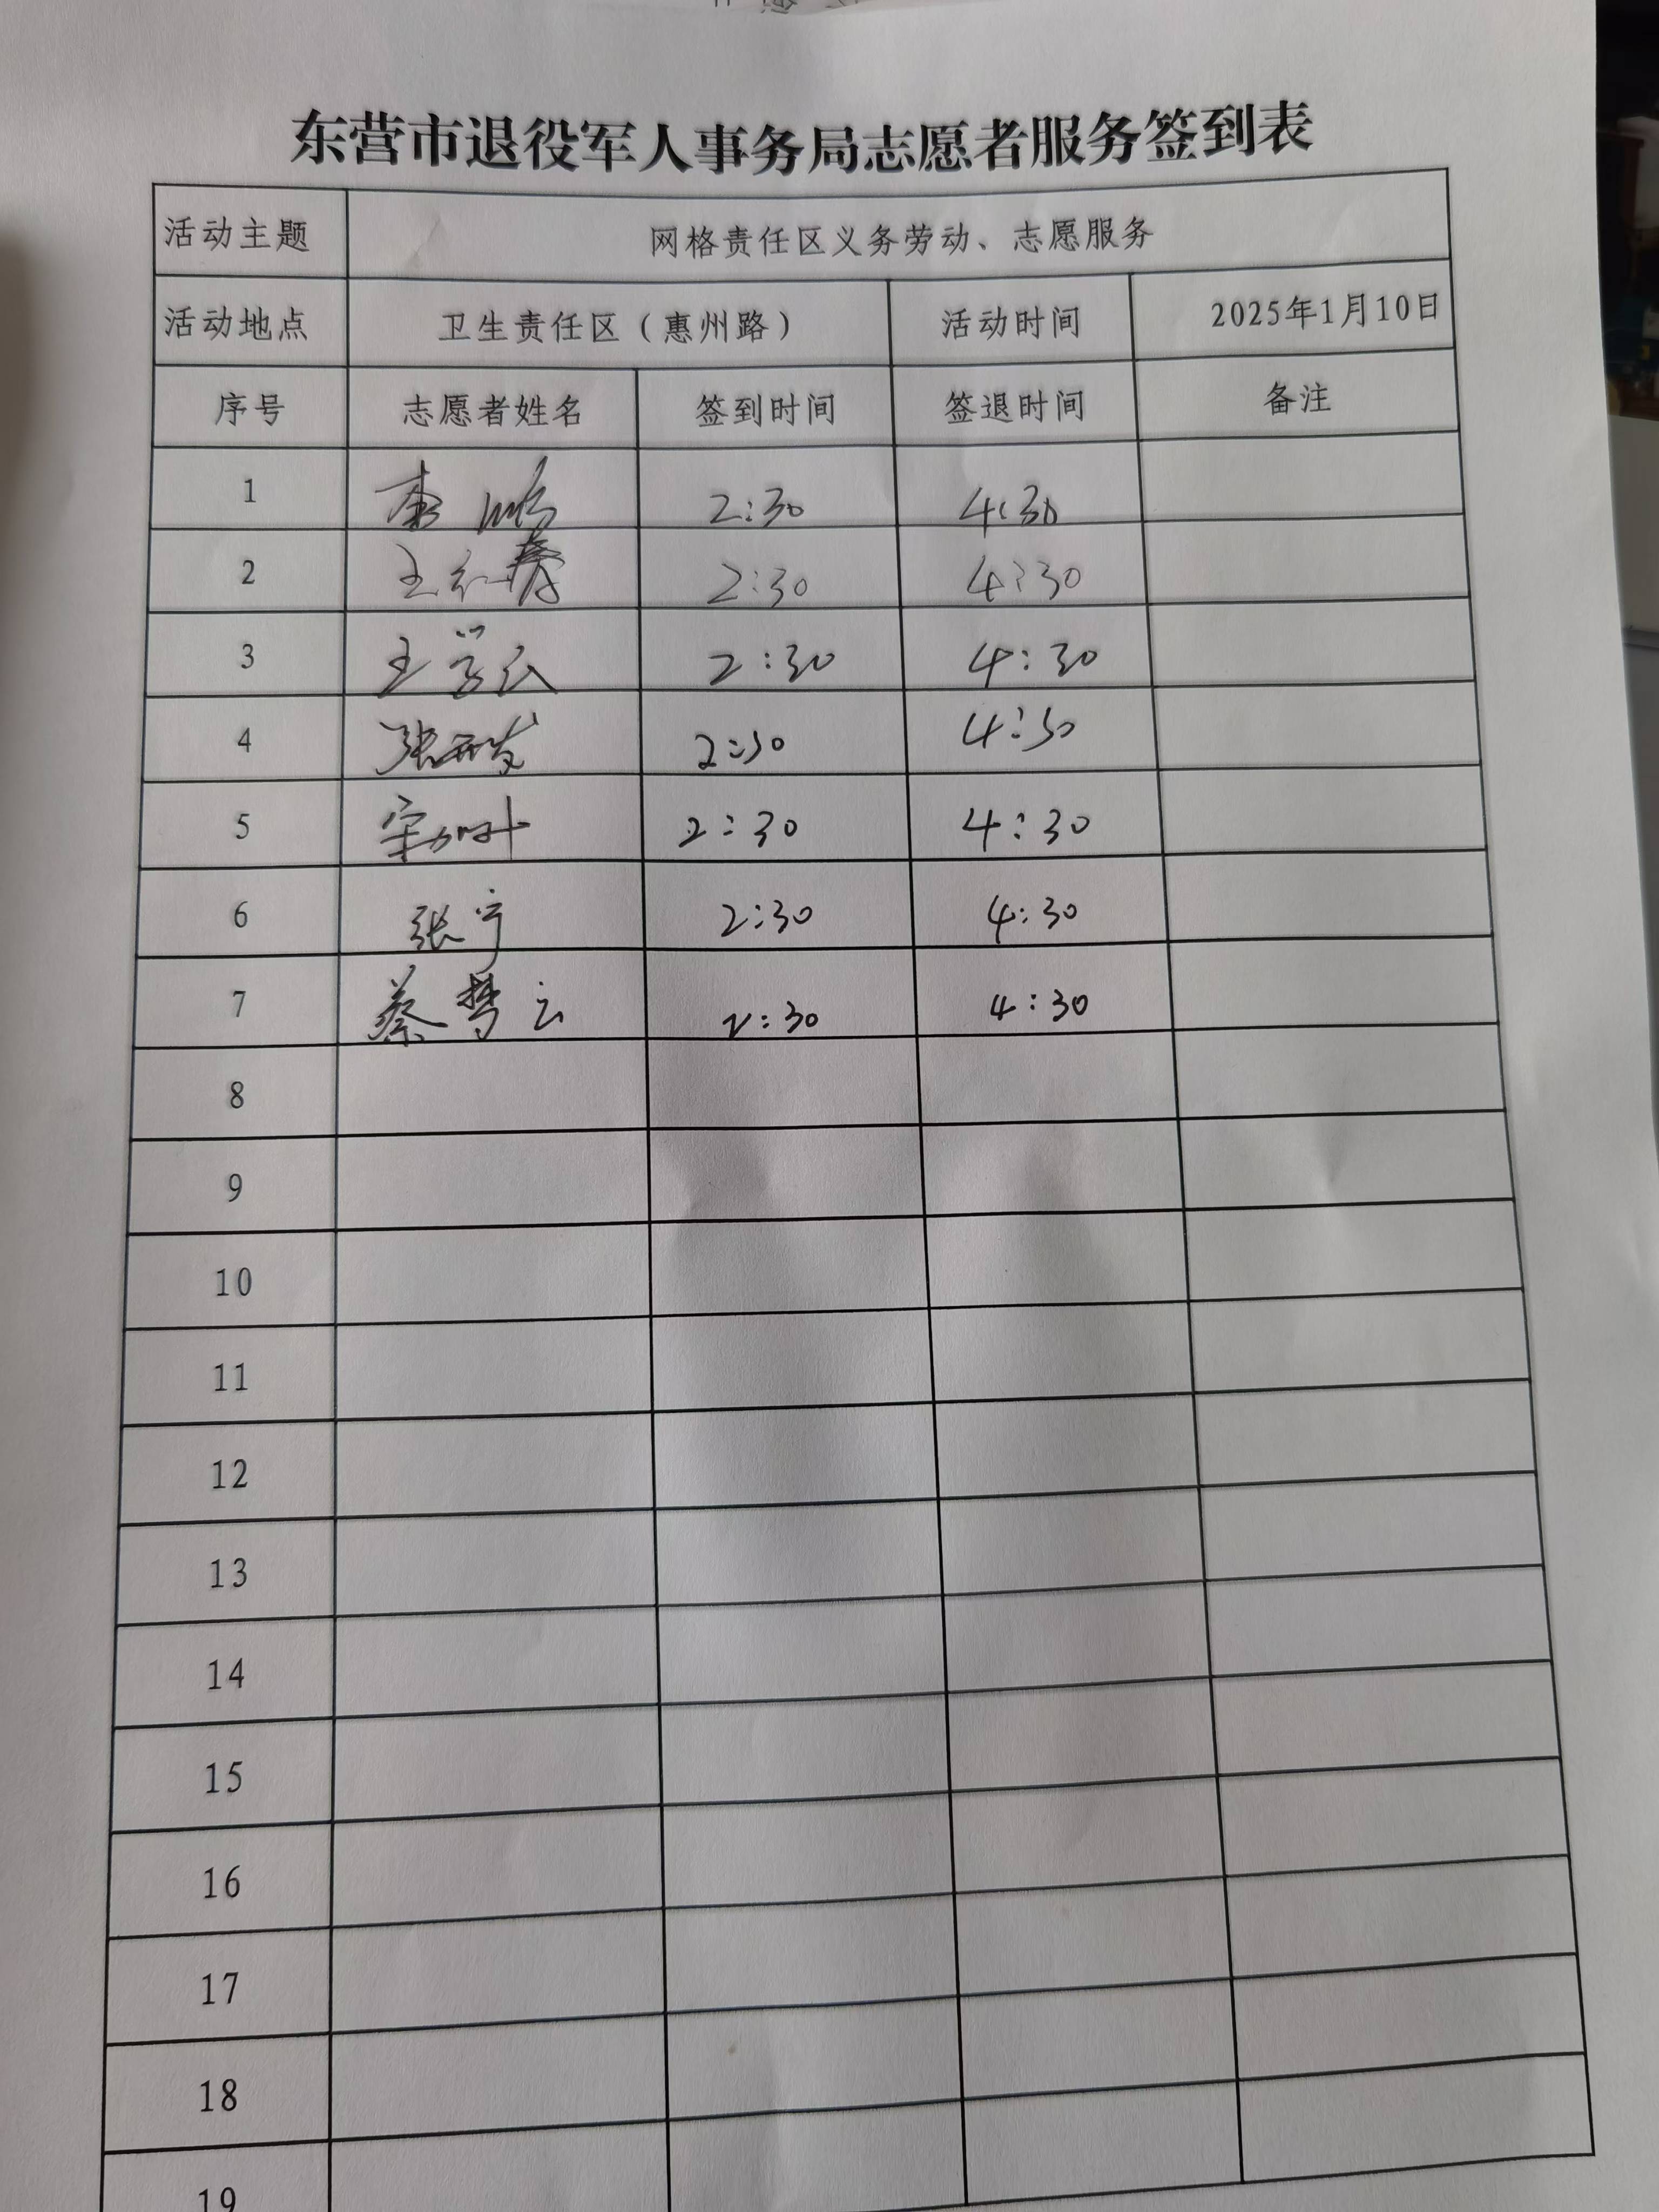 东营市退役军人事务局志愿者服务签到表
活动主题 网格责任区义务劳动、志愿服务
活动地点 卫生责任区（惠州路） 活动时间 2025年1月10日
序号 志愿者姓名 签到时间 签退时间 备注
1 2:30 4:30
2 王红 2:30 4:30
3 王学云 2:30 4:30
4 张 2:30 4:30
5 宋 2:30 4:30
6 张宁 2:30 4:30
7 蔡梦云 2:30 4:30
8
9
10
11
12
13
14
15
16
17
18
19